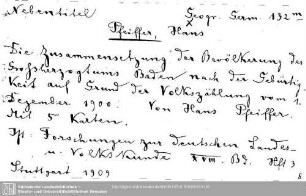 Nebentitel
Geogr. Germ. 132m
Pfeiffer, Hans
Die Zusammensetzung der Bevölkerung des
Großherzogtums Baden nach der Gebürtig-
keit auf Grund der Volkszählung vom 1.
Dezember 1900. Von Hans Pfeiffer.
Mit 5 Karten.
Forschungen zur deutschen Landes-
u. Volkskunde XVIII. Bd. Hft 3
Stuttgart 1909